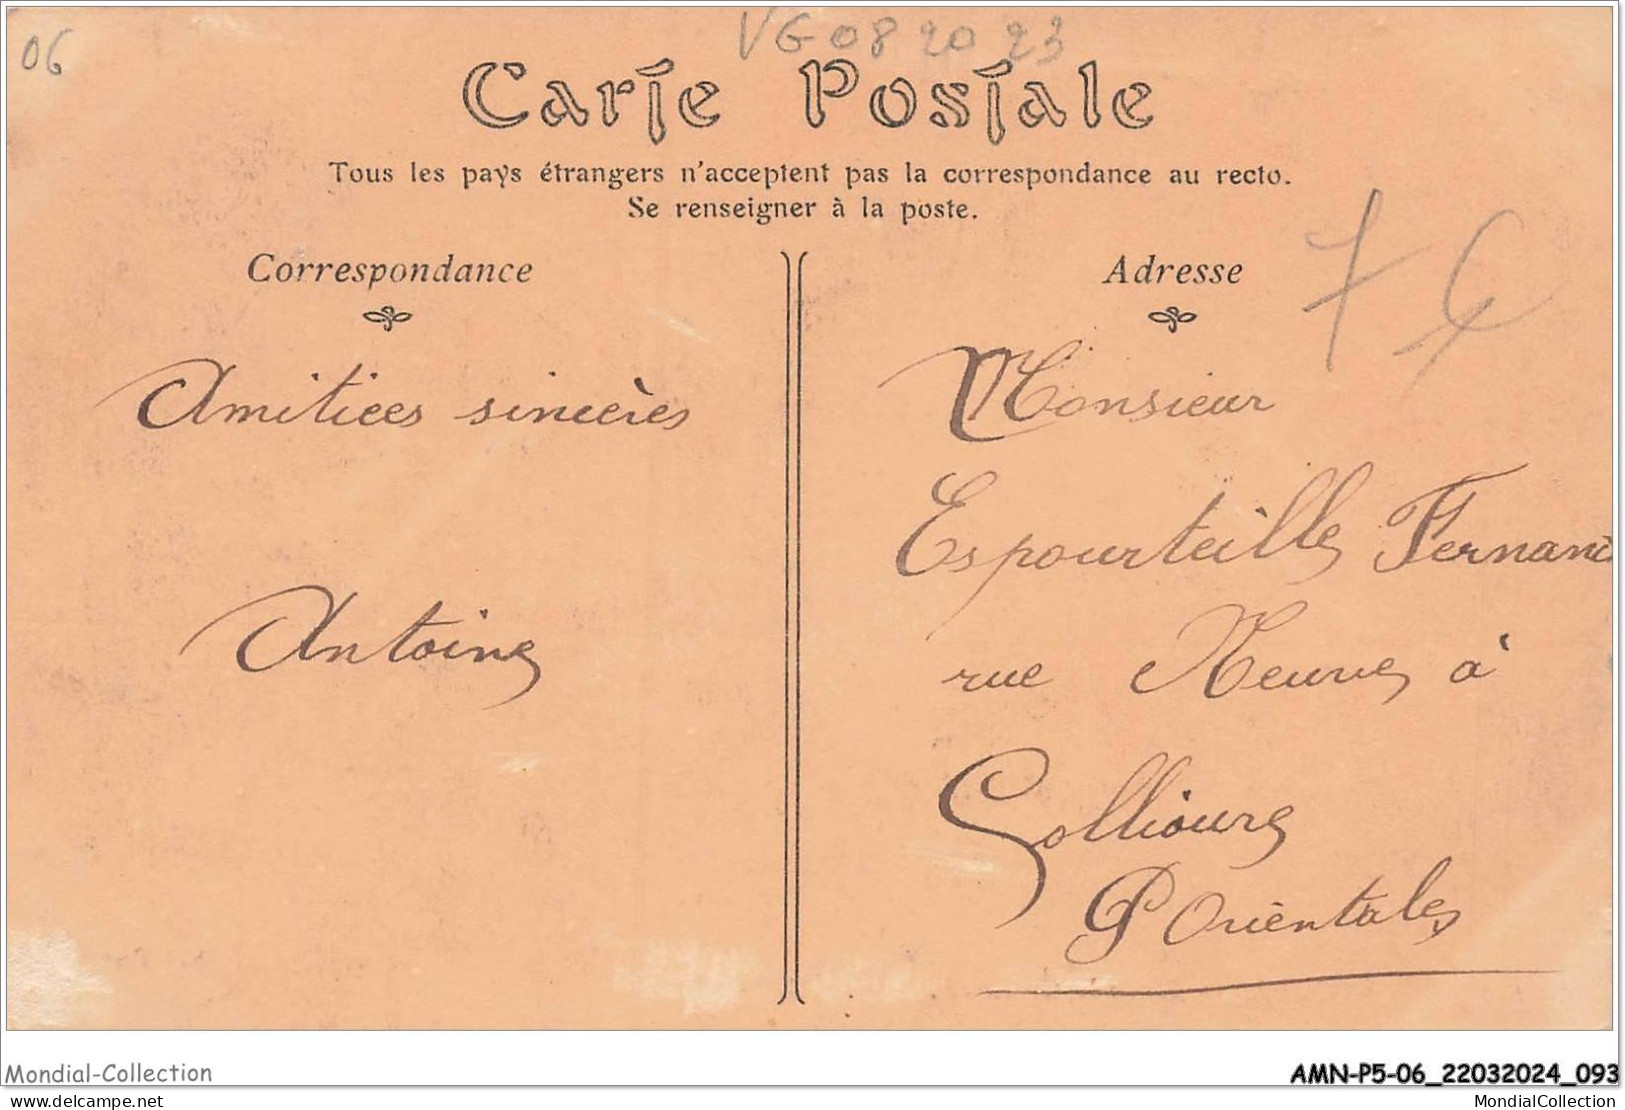 06
VG 08 20 23
Carte Postale
Tous les pays étrangers n'acceptent pas la correspondance au recto.
Se renseigner à la poste.
Correspondance
Adresse
7 €
Amitiees sincères
Antoine
Monsieur
Espourteille Fernand
rue Neuve à
Collioure
P Orientales
Mondial-Collection
AMN-P5-06_22032024_093
delcampe.net
MondialCollection